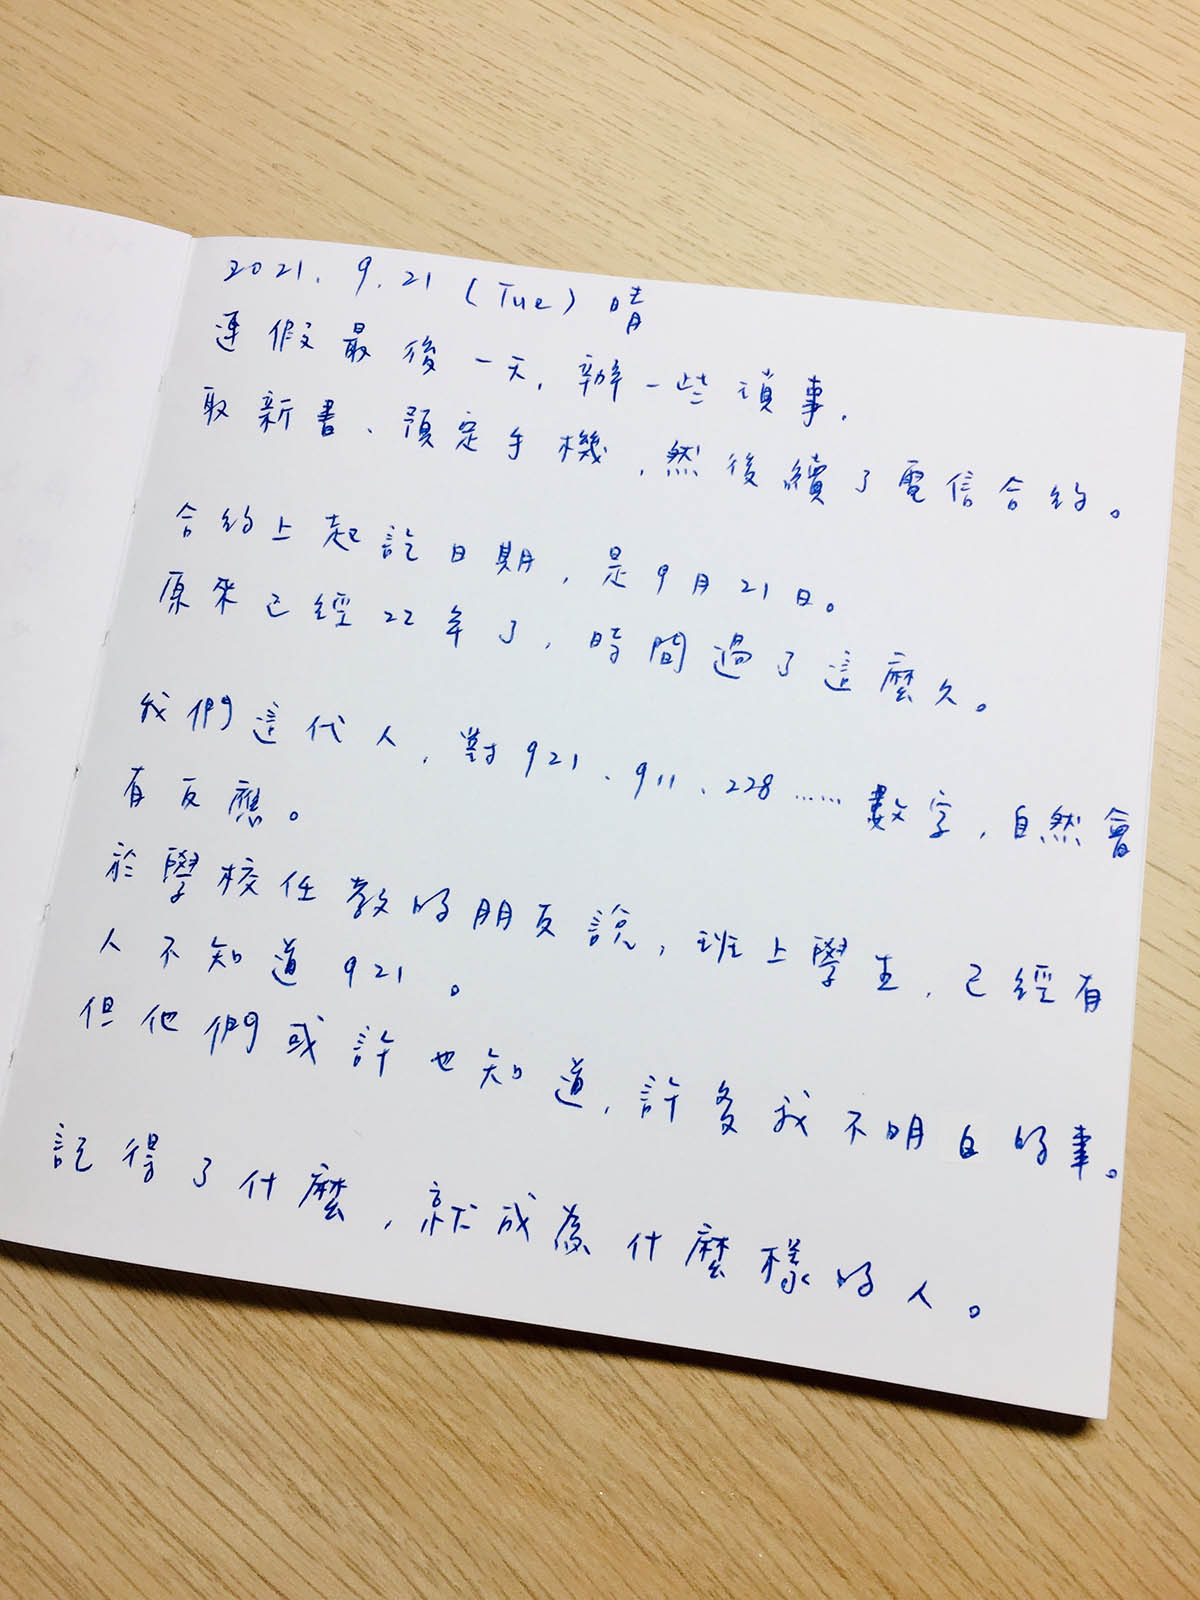 2021. 9. 21 (Tue) 晴
連假最後一天, 辦一些瑣事,
取新書、預定手機, 然後續了電信合約。
合約上起訖日期, 是9月21日。
原來已經22年了, 時間過了這麼久。
我們這代人, 對921、911、228……數字, 自然會
有反應。
於學校任教的朋友說, 班上學生, 已經有
人不知道921。
但他們或許也知道, 許多我不明白的事。
記得了什麼, 就成為什麼樣的人。